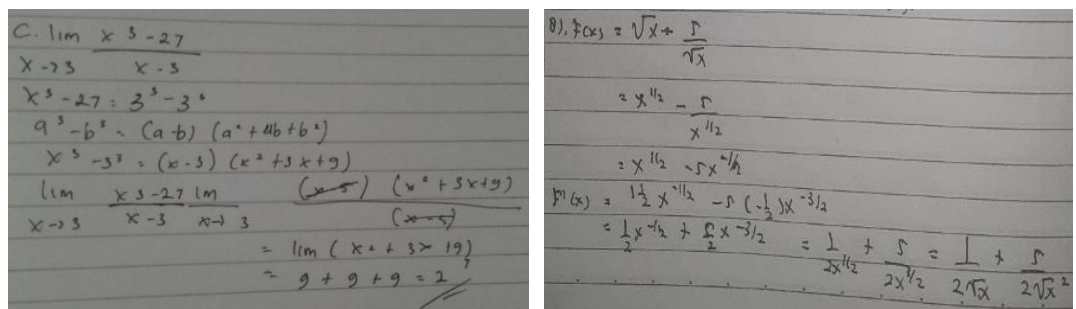 C. lim x³ - 27
x → 3 x - 3
x³ - 27 = 3³ - 3³
a³ - b³ = (a-b) (a² + ab + b²)
x³ - 3³ = (x - 3) (x² + 3x + 9)
lim x³ - 27 lim (x-3) (x² + 3x + 9)
x → 3 x - 3 x → 3 (x-3)
= lim (x² + 3x + 9)
= 9 + 9 + 9 = 2
8). F(x) = √x - 5
√x
= x^1/2 - 5
x^1/2
= x^1/2 - 5x^-1/2
F'(x) = 1/2 x^-1/2 - 5 (-1/2) x^-3/2
= 1/2 x^-1/2 + 5/2 x^-3/2 = 1 + 5 = 1 + 5
2x^1/2 2x^3/2 2√x 2√x²